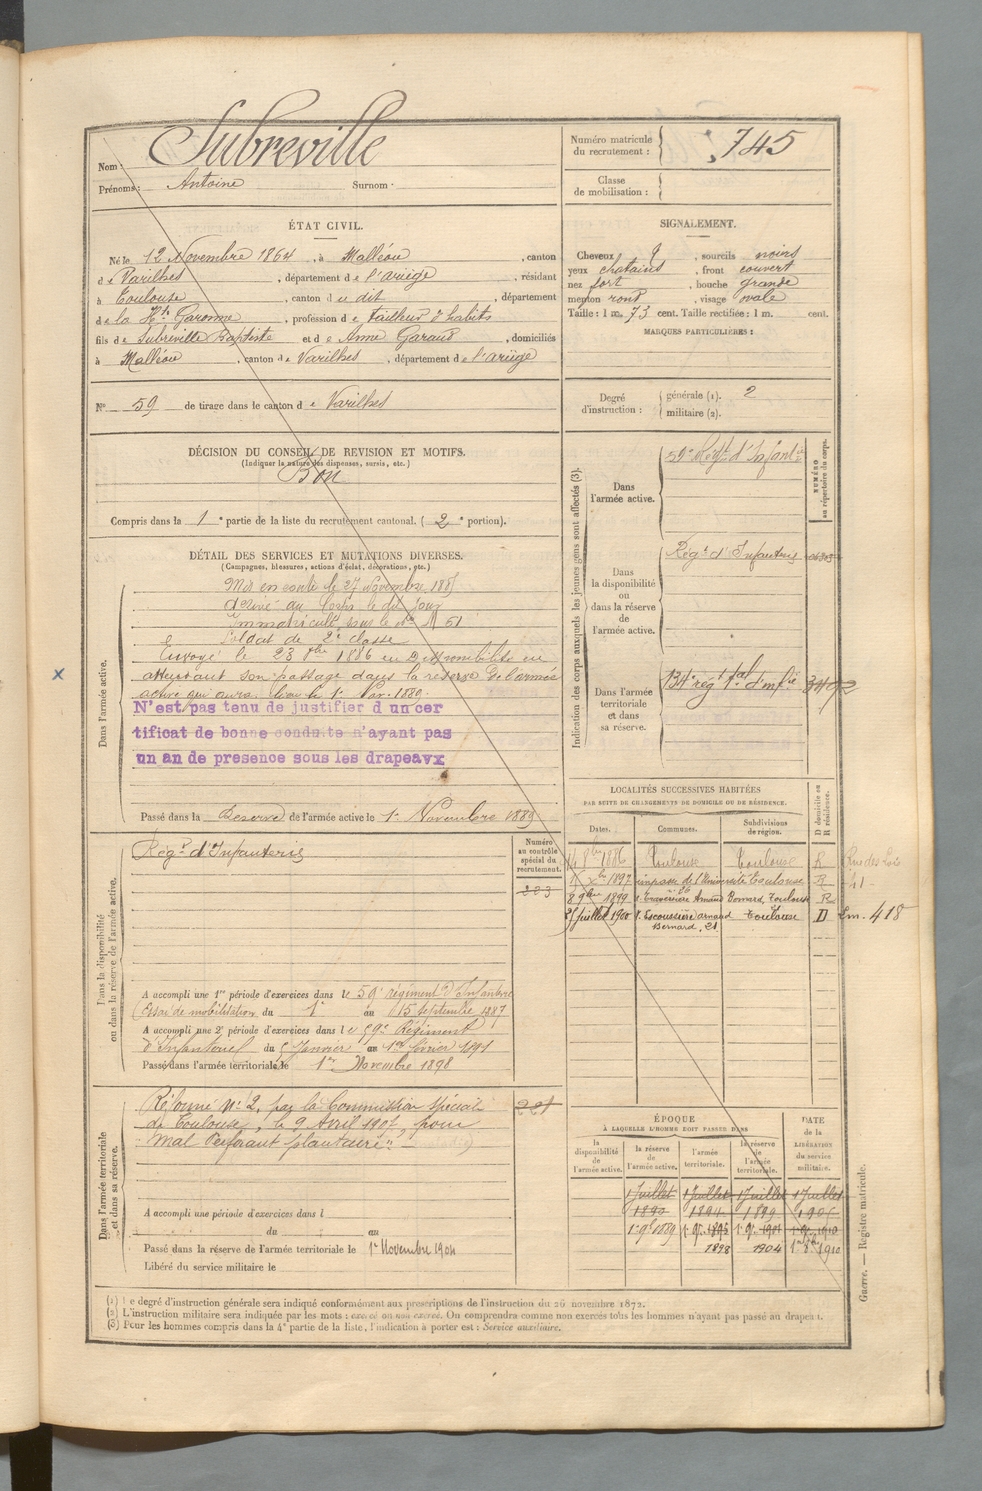 Nom : Subreville
Prénoms : Antoine Surnom :
Numéro matricule du recrutement : 745
Classe de mobilisation :
ÉTAT CIVIL.
Né le 12 Novembre 1864, à Malléon, canton
de Varilhes, département de l'ariège, résidant
à Toulouse, canton du dit, département
de la Hte Garonne, profession de tailleur d'habits
fils de Subreville Baptiste et de Anne Garaud, domiciliés
à Malléon, canton de Varilhes, département de l'ariège
SIGNALEMENT.
Cheveux, sourcils noirs
yeux chatains, front couvert
nez fort, bouche grande
menton rond, visage ovale
Taille : 1 m. 73 cent. Taille rectifiée : 1 m. cent.
MARQUES PARTICULIÈRES :
No 59 de tirage dans le canton de Varilhes
Degré d'instruction : générale (1). 2
militaire (2).
DÉCISION DU CONSEIL DE REVISION ET MOTIFS.
(Indiquer la nature des dispenses, sursis, etc.)
Bon
Compris dans la 1e partie de la liste du recrutement cantonal. (2e portion).
DÉTAIL DES SERVICES ET MUTATIONS DIVERSES.
(Campagnes, blessures, actions d'éclat, décorations, etc.)
Dans l'armée active.
Mis en route le 27 Novembre 1885
arrivé au Corps le dit jour
Immatriculé sous le No
Soldat de 2e classe
Envoyé le 23 1886 en Disponibilité en
attendant son passage dans la réserve de l'armée
active qui aura lieu le 1er
N'est pas tenu de justifier d un cer
tificat de bonne conduite n'ayant pas
un an de presence sous les drapeaux
Passé dans la Réserve de l'armée active le 1er Novembre 1889
Indication des corps auxquels les jeunes gens sont affectés (3).
NUMÉRO au répertoire du corps.
Dans l'armée active. 59e Régt d'Infantie
Dans la disponibilité ou dans la réserve de l'armée active. Régt d'Infanterie
Dans l'armée territoriale et dans sa réserve. 134e régt tal d'infie
LOCALITÉS SUCCESSIVES HABITÉES
PAR SUITE DE CHANGEMENTS DE DOMICILE OU DE RÉSIDENCE.
D domicile ou R résidence.
Dates. Communes. Subdivisions de région.
8bre 1886 Toulouse Toulouse R Rue des Lois
1897 impasse de l'Université Toulouse R 41
8 9bre 1899 r. Traversière Arnaud Bernard, Toulouse R
25 Juillet 1900 r. Escoussière arnaud Bernard, 21 Toulouse D Em. 418
Dans la disponibilité ou dans la réserve de l'armée active.
Régt d'Infanterie
Numéro au contrôle spécial du recrutement.
223
A accompli une 1re période d'exercices dans le 59e régiment d'Infanterie
(Essai de mobilisation du 1er au 15 septembre 1887
A accompli une 2e période d'exercices dans le 59e Régiment
d'Infanterie du 5 Janvier au 1er février 1891
Passé dans l'armée territoriale le 1er Novembre 1898
Dans l'armée territoriale et dans sa réserve.
Réformé No 2, par la Commission spéciale
de Toulouse, le 9 Avril 1907, pour
"mal Perforant plantaire"
221
A accompli une période d'exercices dans l
du au
Passé dans la réserve de l'armée territoriale le 1er Novembre 1904
Libéré du service militaire le
ÉPOQUE
À LAQUELLE L'HOMME DOIT PASSER DANS
la disponibilité de l'armée active. la réserve de l'armée active. l'armée territoriale. la réserve de l'armée territoriale. DATE de la LIBÉRATION du service militaire.
1 Juillet 1 Juillet 1 Juillet 1 Juillet
1890 1894 1899 1905
1er 9b 1889 1er 9. 1895 1er 9. 1901 1er 9. 1910
1898 1904 1910
Guerre. — Registre matricule.
(1) Le degré d'instruction générale sera indiqué conformément aux prescriptions de l'instruction du 26 novembre 1872.
(2) L'instruction militaire sera indiquée par les mots : exercé ou non exercé. On comprendra comme non exercés tous les hommes n'ayant pas passé au drapeau.
(3) Pour les hommes compris dans la 4e partie de la liste, l'indication à porter est : Service auxiliaire.